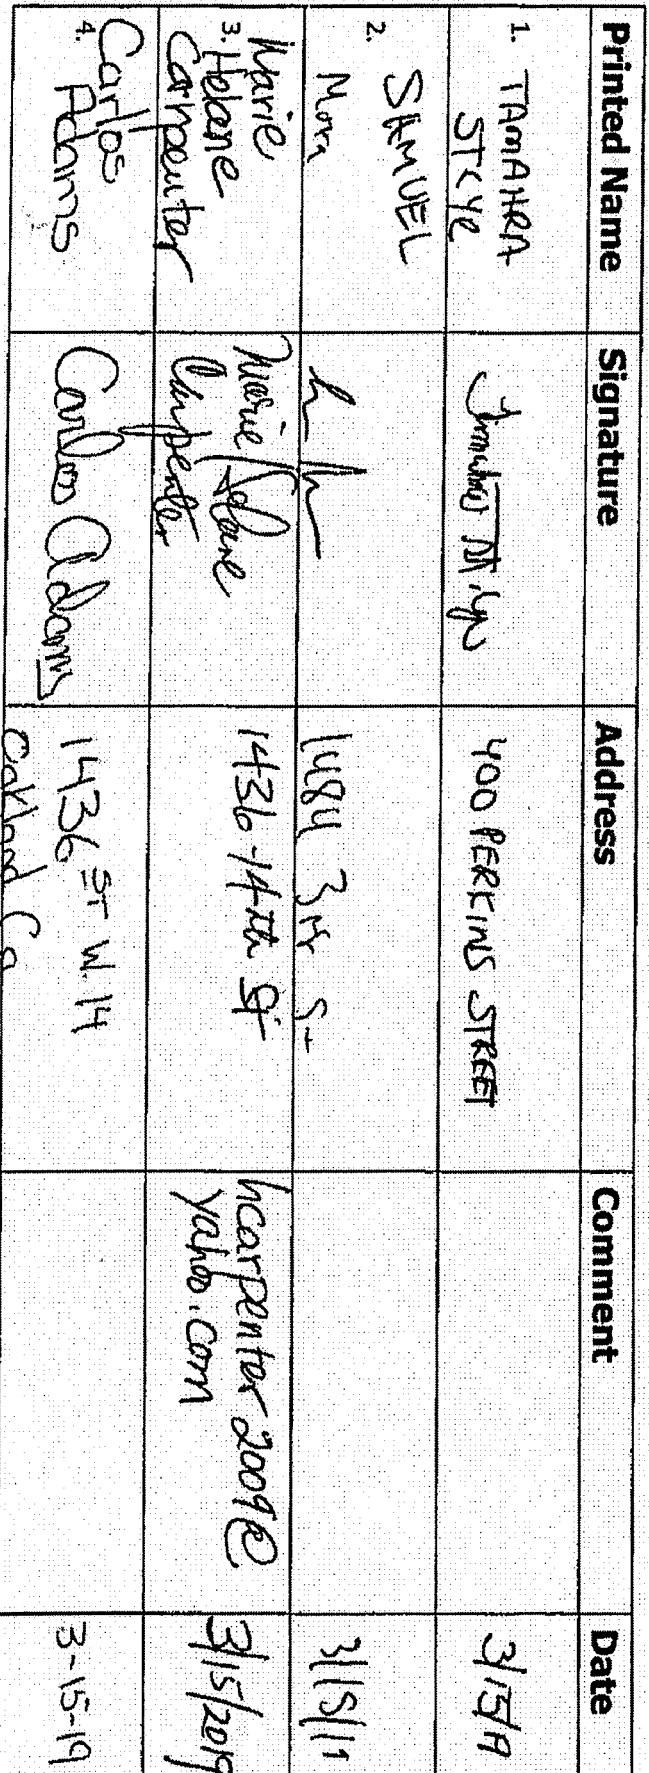 Printed Name Signature Address Comment Date
1. TAMAHRA
STCYR
400 PERKINS STREET
3/15/19
2. SAMUEL
Mora
1484 3rd St
3/15/19
Marie
3. Helane
Carpenter
Marie Helane
Carpenter
1436-14th St
hcarpenter2009@
yahoo.com
3/15/2019
4. Carlos
Adams
Carlos Adams
1436 ST W. 14
Oakland Ca
3-15-19